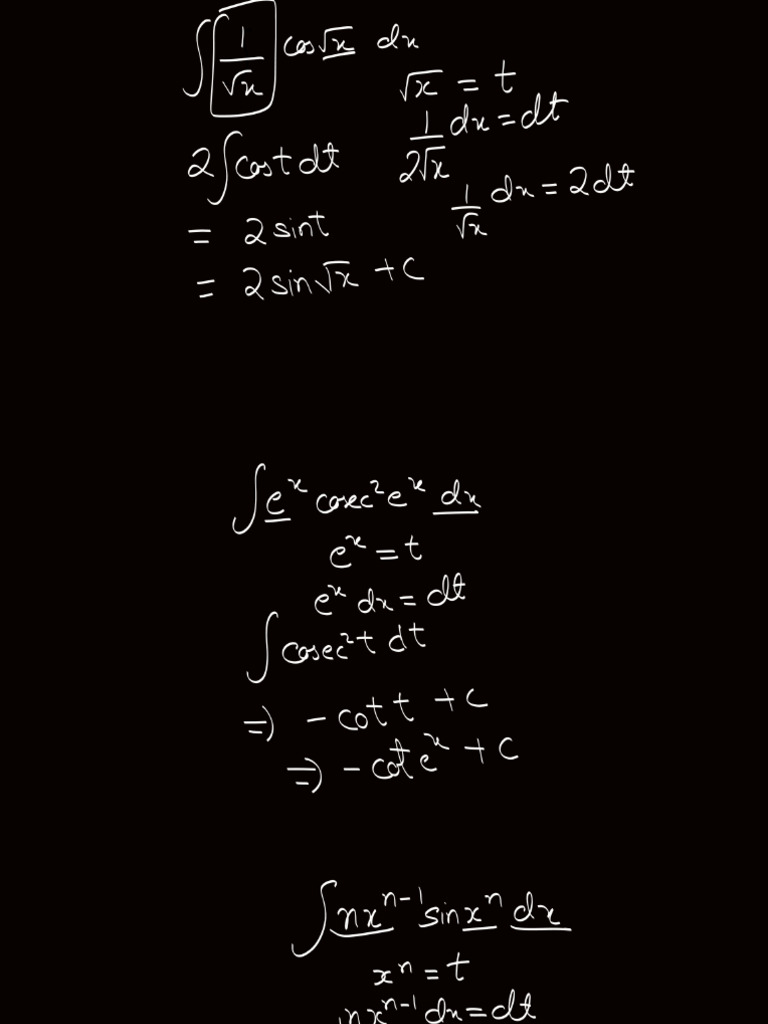 ∫ 1/√x cos√x dx
√x = t
1/2√x dx = dt
2∫cost dt
1/√x dx = 2dt
= 2sint
= 2sin√x + c
∫e^x cosec²e^x dx
e^x = t
e^x dx = dt
∫cosec²t dt
=) - cot t + c
=) - cot e^x + c
∫nx^(n-1) sinx^n dx
x^n = t
nx^(n-1) dx = dt